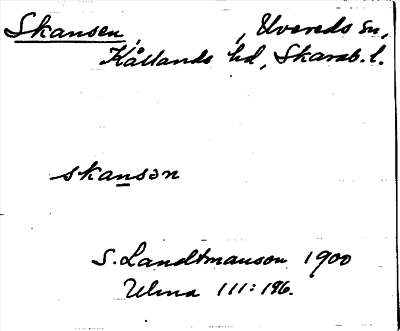 Skansen, , Uvereds sn,
Kållands hd, Skarab. l.
skansən
S. Landtmanson 1900
Ulma 111:196.